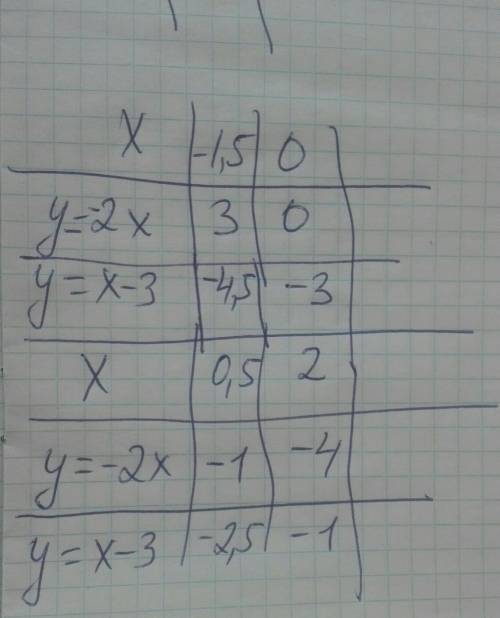 x -1,5 0
y=-2x 3 0
y=x-3 -4,5 -3
x 0,5 2
y=-2x -1 -4
y=x-3 -2,5 -1